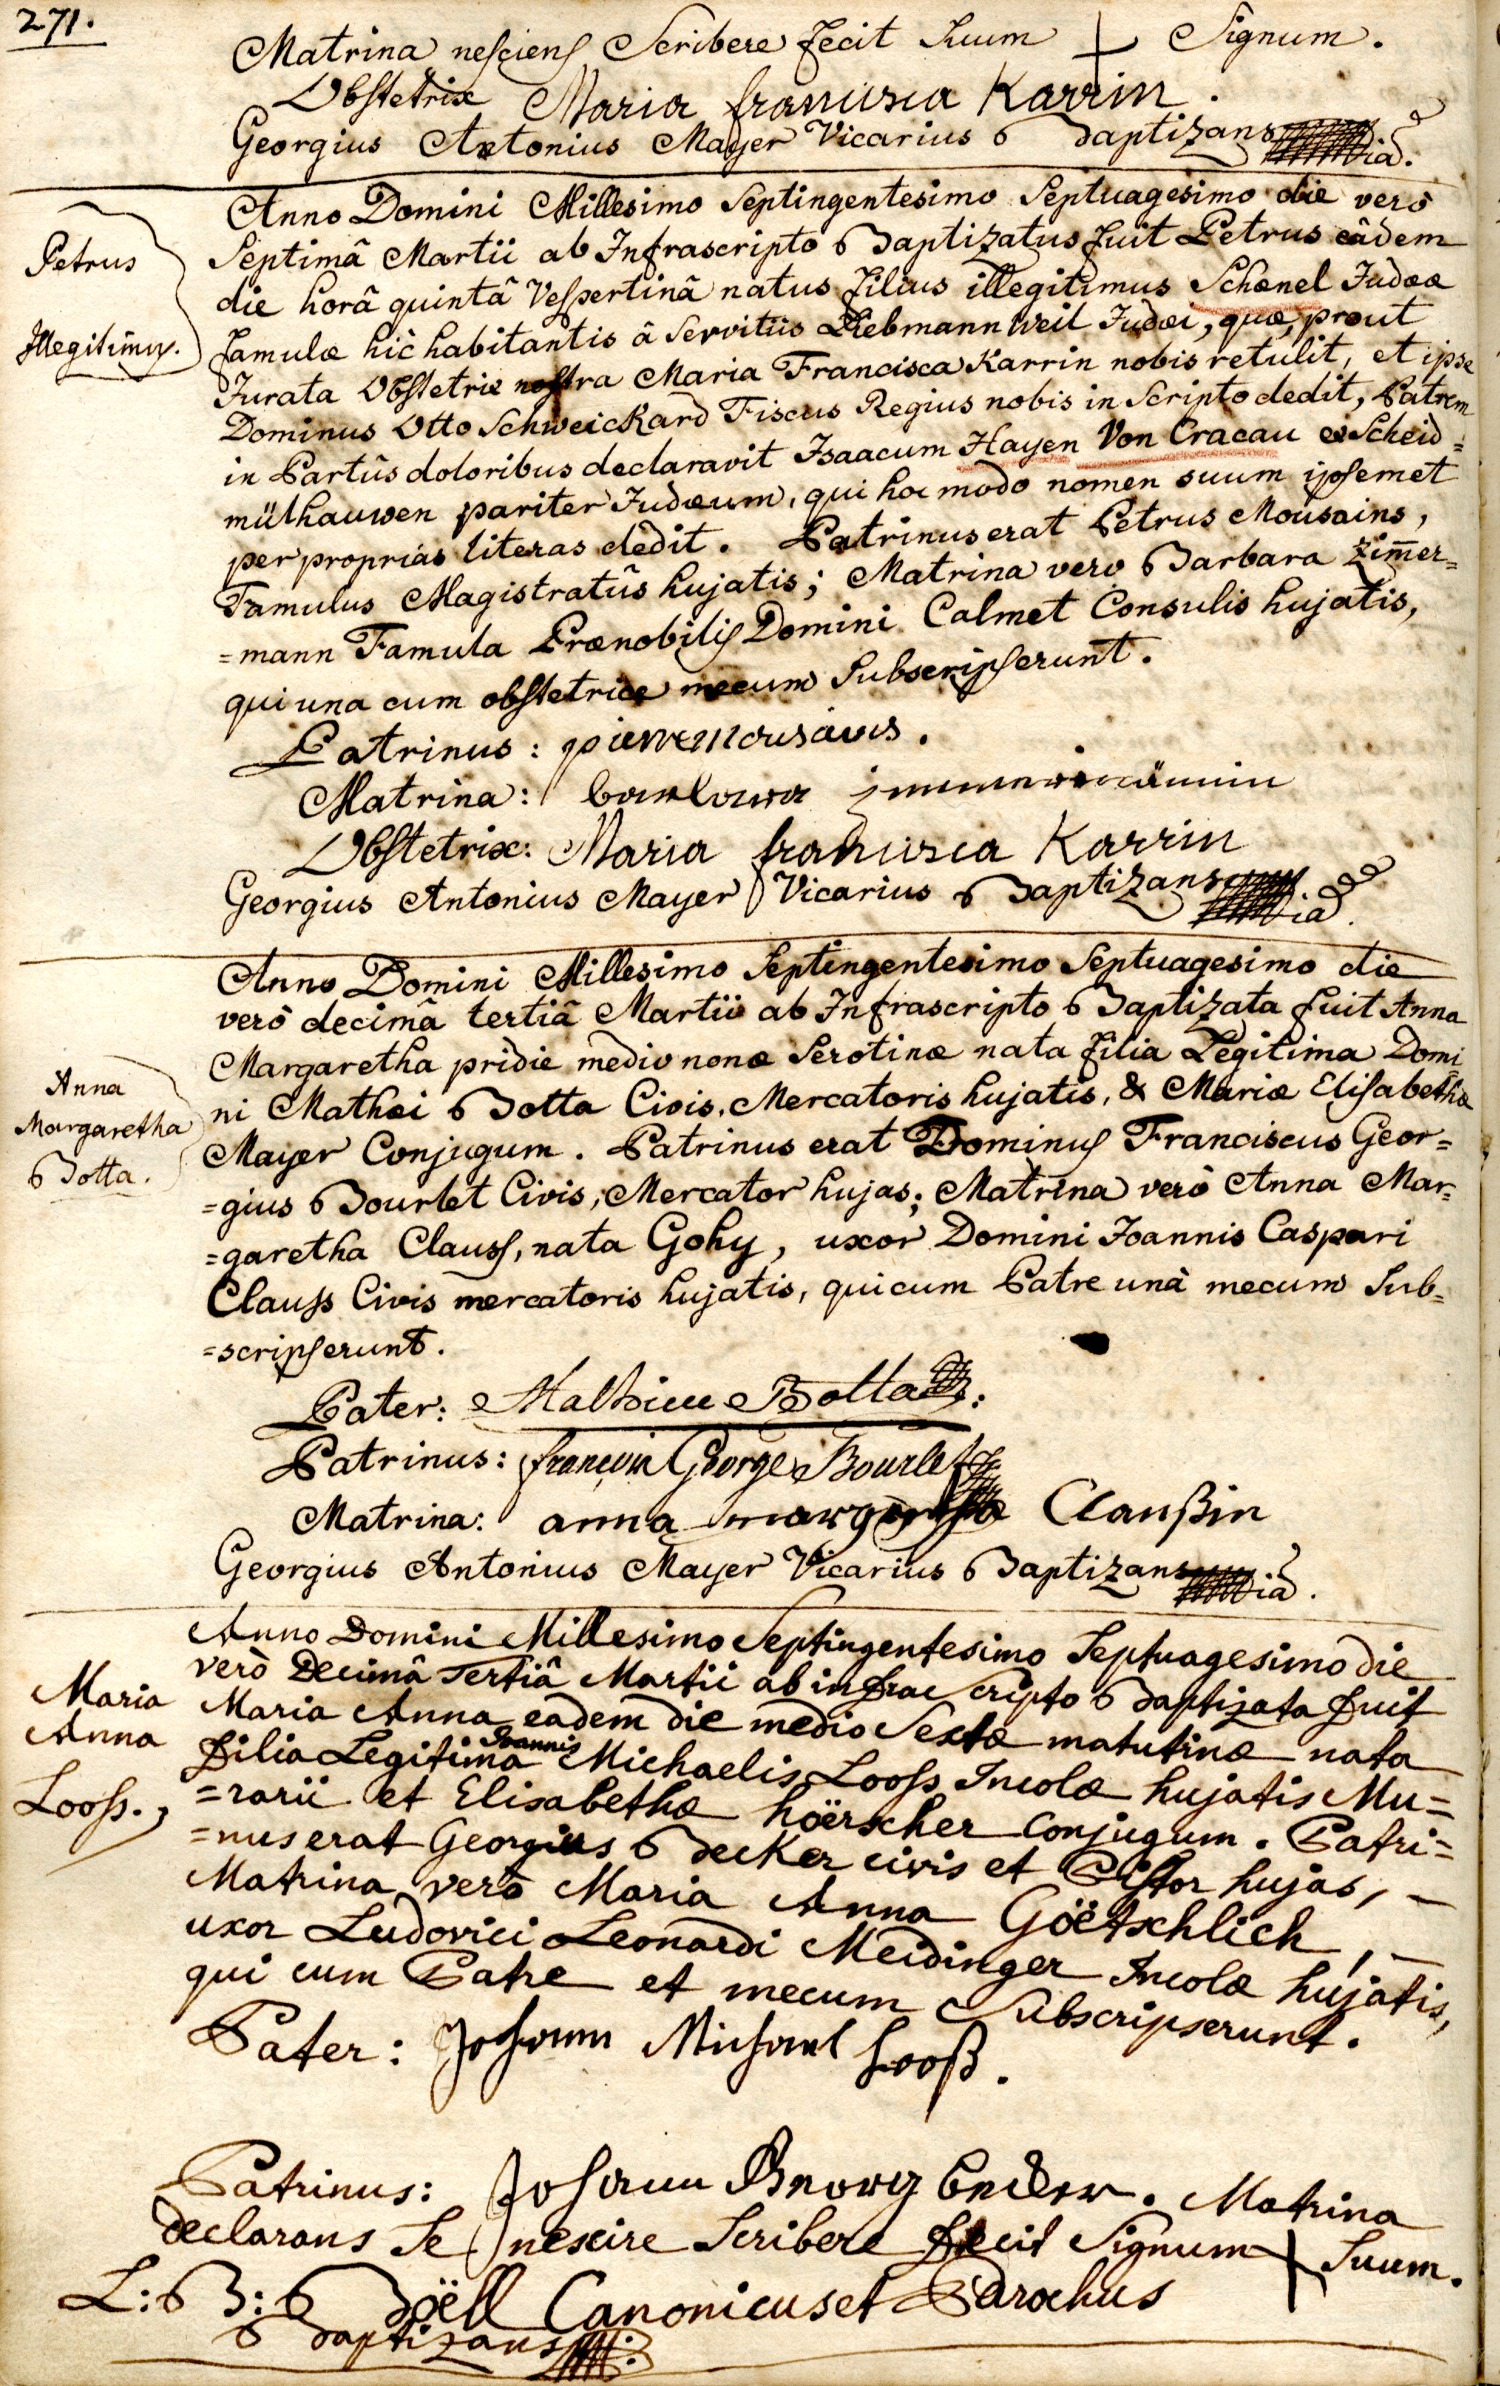 271.
Matrina nesciens Scribere fecit Suum + Signum.
Obstetrix Maria francisca Karrin.
Georgius Antonius Mayer Vicarius Baptizans
Anno Domini Millesimo Septingentesimo Septuagesimo die verò
Petrus
Illegitimus.
Septimâ Martii ab Infrascripto Baptizatus fuit Petrus eâdem
die horâ quintâ Vespertinâ natus filius illegitimus Schænel Judææ
famulæ hìc habitantis â Servitiis Liebmann Weil Judæi, quæ, prout
Jurata Obstetrix nostra Maria Francisca Karrin nobis retulit, et ipse
Dominus Otto Schweickard Fiscus Regius nobis in Scripto dedit, Patrem
in Partûs doloribus declaravit Isaacum Hayen Von Cracau ex Scheid=
mülhauwen pariter Judæum, qui hoc modo nomen suum ipsemet
per proprias literas dedit. Patrinus erat Petrus Mousains,
Famulus Magistratûs hujatis; Matrina vero Barbara Zim̅er=
=mann Famula Prænobilis Domini Calmet Consulis hujatis,
qui una cum obstetrice mecum Subscripserunt.
Patrinus: pierre mousains.
Matrina: barbara
Obstetrix: Maria francisca Karrin
Georgius Antonius Mayer Vicarius Baptizans
Anno Domini Millesimo Septingentesimo Septuagesimo die
verò decimâ tertiâ Martii ab Infrascripto Baptizata fuit Anna
Anna
Margaretha
Botta.
Margaretha pridie medio nonæ Serotinæ nata filia Legitima Domi
ni Mathæi Botta Civis, Mercatoris hujatis, & Mariæ Elisabethæ
Mayer Conjugum. Patrinus erat Dominus Franciscus Geor=
=gius Bourlet Civis, Mercator hujas; Matrina verò Anna Mar=
=garetha Clauss, nata Gohy, uxor Domini Joannis Caspari
Clauss Civis mercatoris hujatis, qui cum Patre unà mecum Sub=
=scripserunt.
Pater: Mathieu Botta
Patrinus: françois George Bourlet
Matrina: anna margaretha Claußin
Georgius Antonius Mayer Vicarius Baptizans
Anno Domini Millesimo Septingentesimo Septuagesimo die
verò Decimâ Tertiâ Martii ab infrae Scripto Baptizata fuit
Maria
Anna
Looss.
Maria Anna eadem die medio Sextæ matutinæ nata
filia Legitima Joannis Michaelis Looss Incolæ hujatis Mu=
=rarii et Elisabethæ hoërscher conjugum. Patri=
=nus erat Georgius Becker civis et Pistor hujas,
Matrina verò Maria Anna Goëtschlich,
uxor Ludovici Leonardi Meidinger Incolæ hujatis,
qui cum Patre et mecum Subscripserunt.
Pater: Johann Michael Looß.
Patrinus: Johann Georg Becker. Matrina
declarans Se nescire Scribere fecit Signum + Suum.
L: B: Boëll Canonicus et Parochus
Baptizans